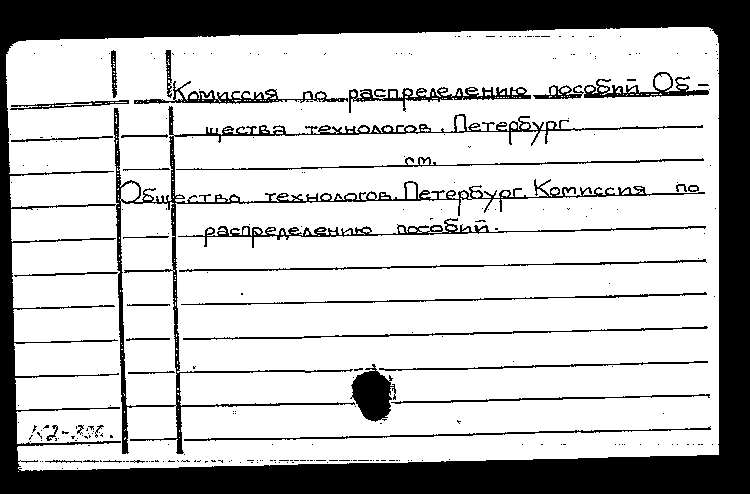 Комиссия по распределению пособий Об-
щества технологов. Петербург
см.
Общество технологов. Петербург. Комиссия по
распределению пособий.